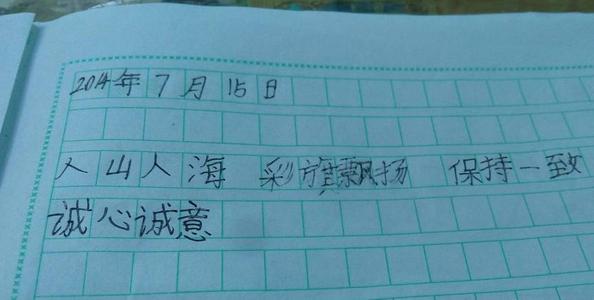 2014年7月15日
人山人海 彩旗飘扬 保持一致
诚心诚意